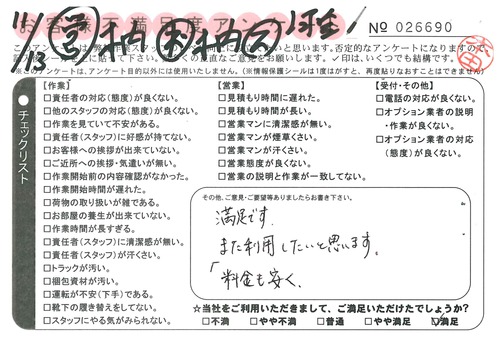 お客様不満足度アンケート
No 026690
11/13
営
✓印は、いくつでも結構です。
※このアンケートは、アンケート目的以外には使用いたしません。(※情報保護シールは1度はがすと、再度貼りなおすことはできません)
チェックリスト
【作業】
□責任者の対応(態度)が良くない。
□他のスタッフの対応(態度)が良くない。
□作業を見ていて不安がある。
□責任者(スタッフ)に好感が持てない。
□お客様への挨拶が出来ていない。
□ご近所への挨拶・気遣いが無い。
□作業開始前の内容確認がなかった。
□作業開始時間が遅れた。
□荷物の取り扱いが雑である。
□お部屋の養生が出来ていない。
□作業時間が長すぎる。
□責任者(スタッフ)に清潔感が無い。
□責任者(スタッフ)が汗くさい。
□トラックが汚い。
□梱包資材が汚い。
□運転が不安(下手)である。
□靴下の履き替えをしてない。
□スタッフにやる気がみられない。
【営業】
□見積もり時間に遅れた。
□見積もり時間が長い。
□営業マンに清潔感が無い。
□営業マンが煙草くさい。
□営業マンが汗くさい。
□営業態度が良くない。
□営業の説明と作業が一致してない。
【受付・その他】
□電話の対応が良くない。
□オプション業者の説明
・作業が良くない。
□オプション業者の対応
(態度)が良くない。
その他、ご意見・ご要望等ありましたらお書き下さい。
満足です。
また利用したいと思います。
料金も安く、
☆当社をご利用いただきまして、ご満足いただけたでしょうか?
□不満 □やや不満 □普通 □やや満足 ☑満足